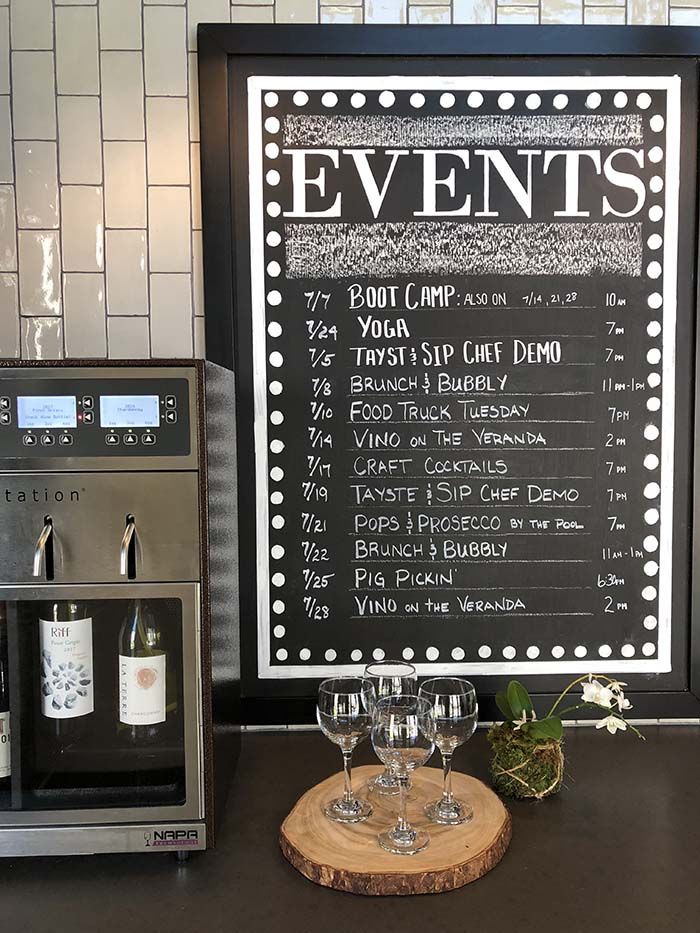 EVENTS
7/7 BOOT CAMP: ALSO ON 7/14, 21, 28 10 AM
7/24 YOGA 7 PM
7/5 TAYST & SIP CHEF DEMO 7 PM
7/8 BRUNCH & BUBBLY 11 AM - 1 PM
7/10 FOOD TRUCK TUESDAY 7 PM
7/14 VINO ON THE VERANDA 2 PM
7/17 CRAFT COCKTAILS 7 PM
7/19 TAYSTE & SIP CHEF DEMO 7 PM
7/21 POPS & PROSECCO BY THE POOL 7 PM
7/22 BRUNCH & BUBBLY 11 AM - 1 PM
7/25 PIG PICKIN' 6:30 PM
7/28 VINO ON THE VERANDA 2 PM
2017
Pinot Grigio
Chardonnay
tation
Riff
Pinot Grigio
2017
LA TERRE
CHARDONNAY
NAPA